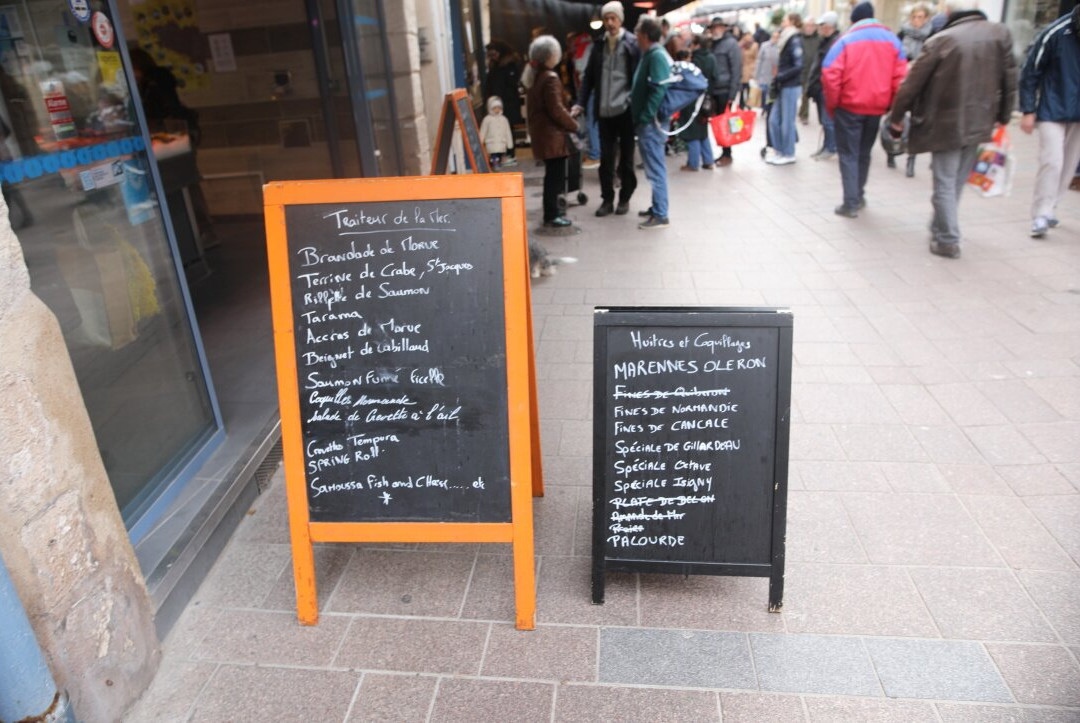 Traiteur de la Mer.
Brandade de Morue
Terrine de Crabe, St Jacques
Rillette de Saumon
Tarama
Accras de Morue
Beignet de Cabillaud
Saumon Fumé Ficelle
Coquilles Normande
Salade de Crevette à l'ail
Crevette Tempura
SPRING Roll.
Samoussa Fish and Cheese..... etc
Huitres et Coquillages
MARENNES OLERON
FINES DE Quiberon
FINES DE NORMANDIE
FINES DE CANCALE
Spéciale DE GILLARDEAU
Spéciale Octave
Spéciale Isigny
PLATE DE BELON
Amande de Mer
Praire
PALOURDE